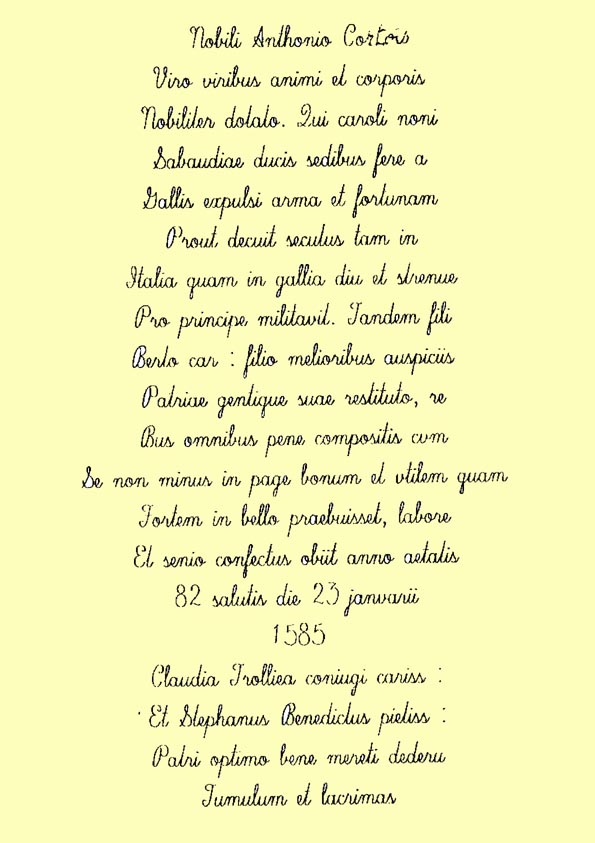 Nobili Anthonio Cortois
Viro viribus animi et corporis
Nobiliter dotato. Qui caroli noni
Sabaudiae ducis sedibus fere a
Gallis expulsi arma et fortunam
Prout decuit secutus tam in
Italia quam in gallia diu et strenue
Pro principe militavit. Tandem fili
Berto car : filio melioribus auspiciis
Patriae gentique suae restituto, re
Bus omnibus pene compositis cvm
Se non minus in page bonum et vtilem quam
Fortem in bello praebuisset, labore
Et senio confectus obiit anno aetatis
82 salutis die 23 janvarii
1585
Claudia Trolliea coniugi cariss :
Et Stephanus Benedictus pietiss :
Patri optimo bene mereti dederu
Tumulum et lacrimas